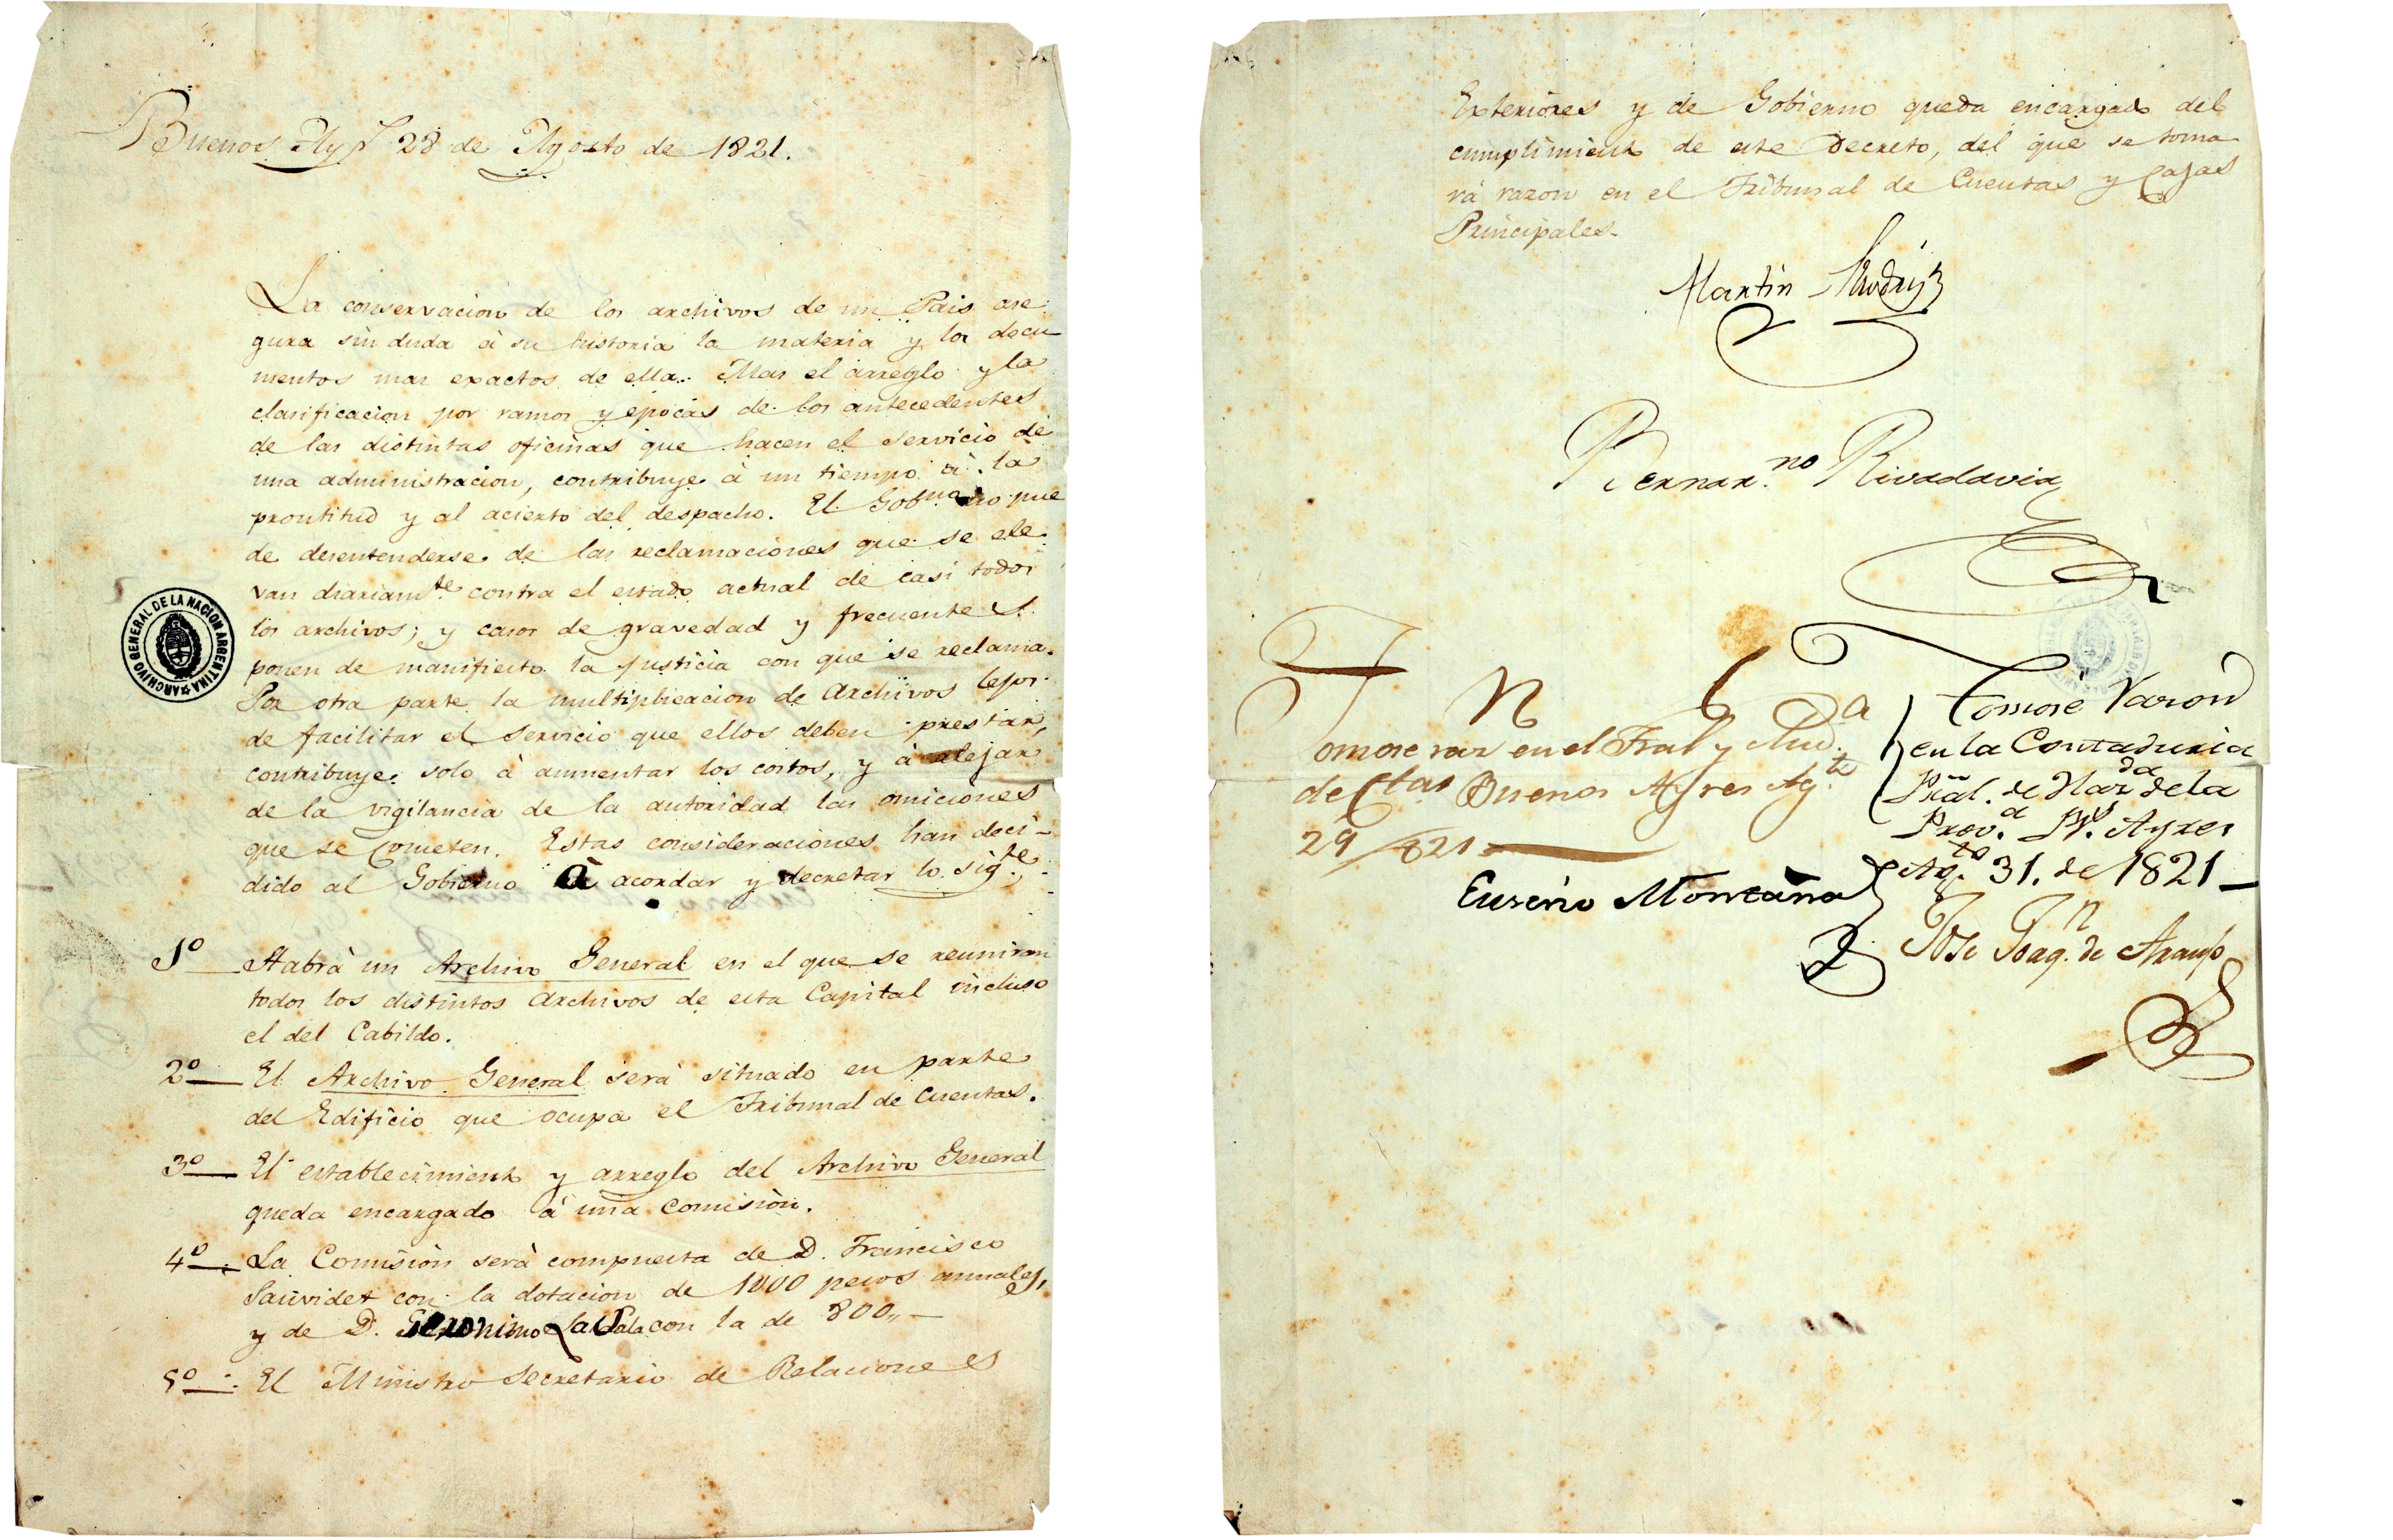 Buenos Ay.s 28 de Agosto de 1821.
La conservacion de los archivos de un Pais ase
gura sin duda à su historia la materia y los docu
mentos mas exactos de ella. Mas el arreglo y la
clasificacion por ramos y epocas de los antecedentes
de las distintas oficinas que hacen el servicio de
una administracion, contribuye à un tiempo à la
prontitud y al acierto del despacho. El Gob.no no pue
de desentenderse de las reclamaciones que se ele
van diariam.te contra el estado actual de casi todos
los archivos; y casos de gravedad y frecuentes
ponen de manifiesto la justicia con que se reclama.
Por otra parte la multiplicacion de Archivos lejos
de facilitar el servicio que ellos deben prestar,
contribuye solo à aumentar los costos, y à alejar
de la vigilancia de la autoridad las omiciones
que se cometen. Estas consideraciones han deci-
dido al Gobierno à acordar y decretar lo sig.te
1º Habrà un Archivo General en el que se reuniran
todos los distintos Archivos de esta Capital incluso
el del Cabildo.
2º El Archivo General serà situado en parte
del Edificio que ocupa el Tribunal de Cuentas.
3º El establecimiento y arreglo del Archivo General
queda encargado à una Comision.
4º La Comision serà compuesta de D. Francisco
Sauvidet con la dotacion de 1000 pesos annales,
y de D. Geronimo La Sala con la de 800,, -
5º El Ministro Secretario de Relaciones
ARCHIVO GENERAL DE LA NACION ARGENTINA
Exteriores y de Gobierno queda encargado del
cumplimiento de este Decreto, del que se toma-
rà razon en el Tribunal de Cuentas y Cajas
Principales.
Martin Rodrig.z
Bernar.no Rivadavia
Tomose raz.n en el Tral y Aud.a
de C.tas Buenos Ayres Ag.to
29/821
Eusevio Montaña
Tomose Razon
en la Contaduria
Pñal. de Haz.da de la
Prov.a B.s Ayres
Ag.to 31. de 1821_
Jose Joaq.n de Araujo